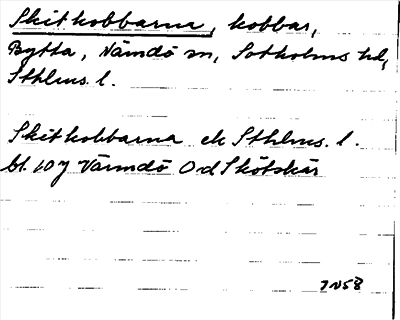 Skitkobbarna, kobbar,
Bytta, Nämdö sn, Sotholms hd,
Sthlms. l.
Skitkobbarna ek Sthlms. l.
bl. 107 Värmdö Od Skötskär
7N58